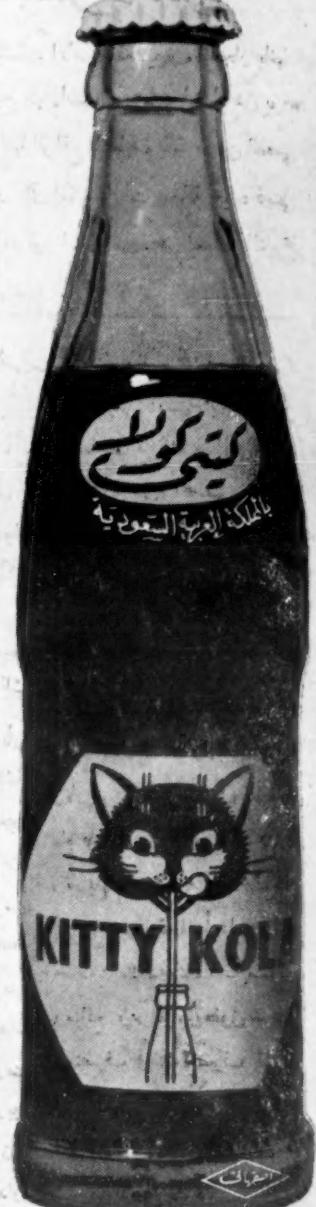 كيتى كولا
بالمملكة العربية السعودية
KITTY KOLA